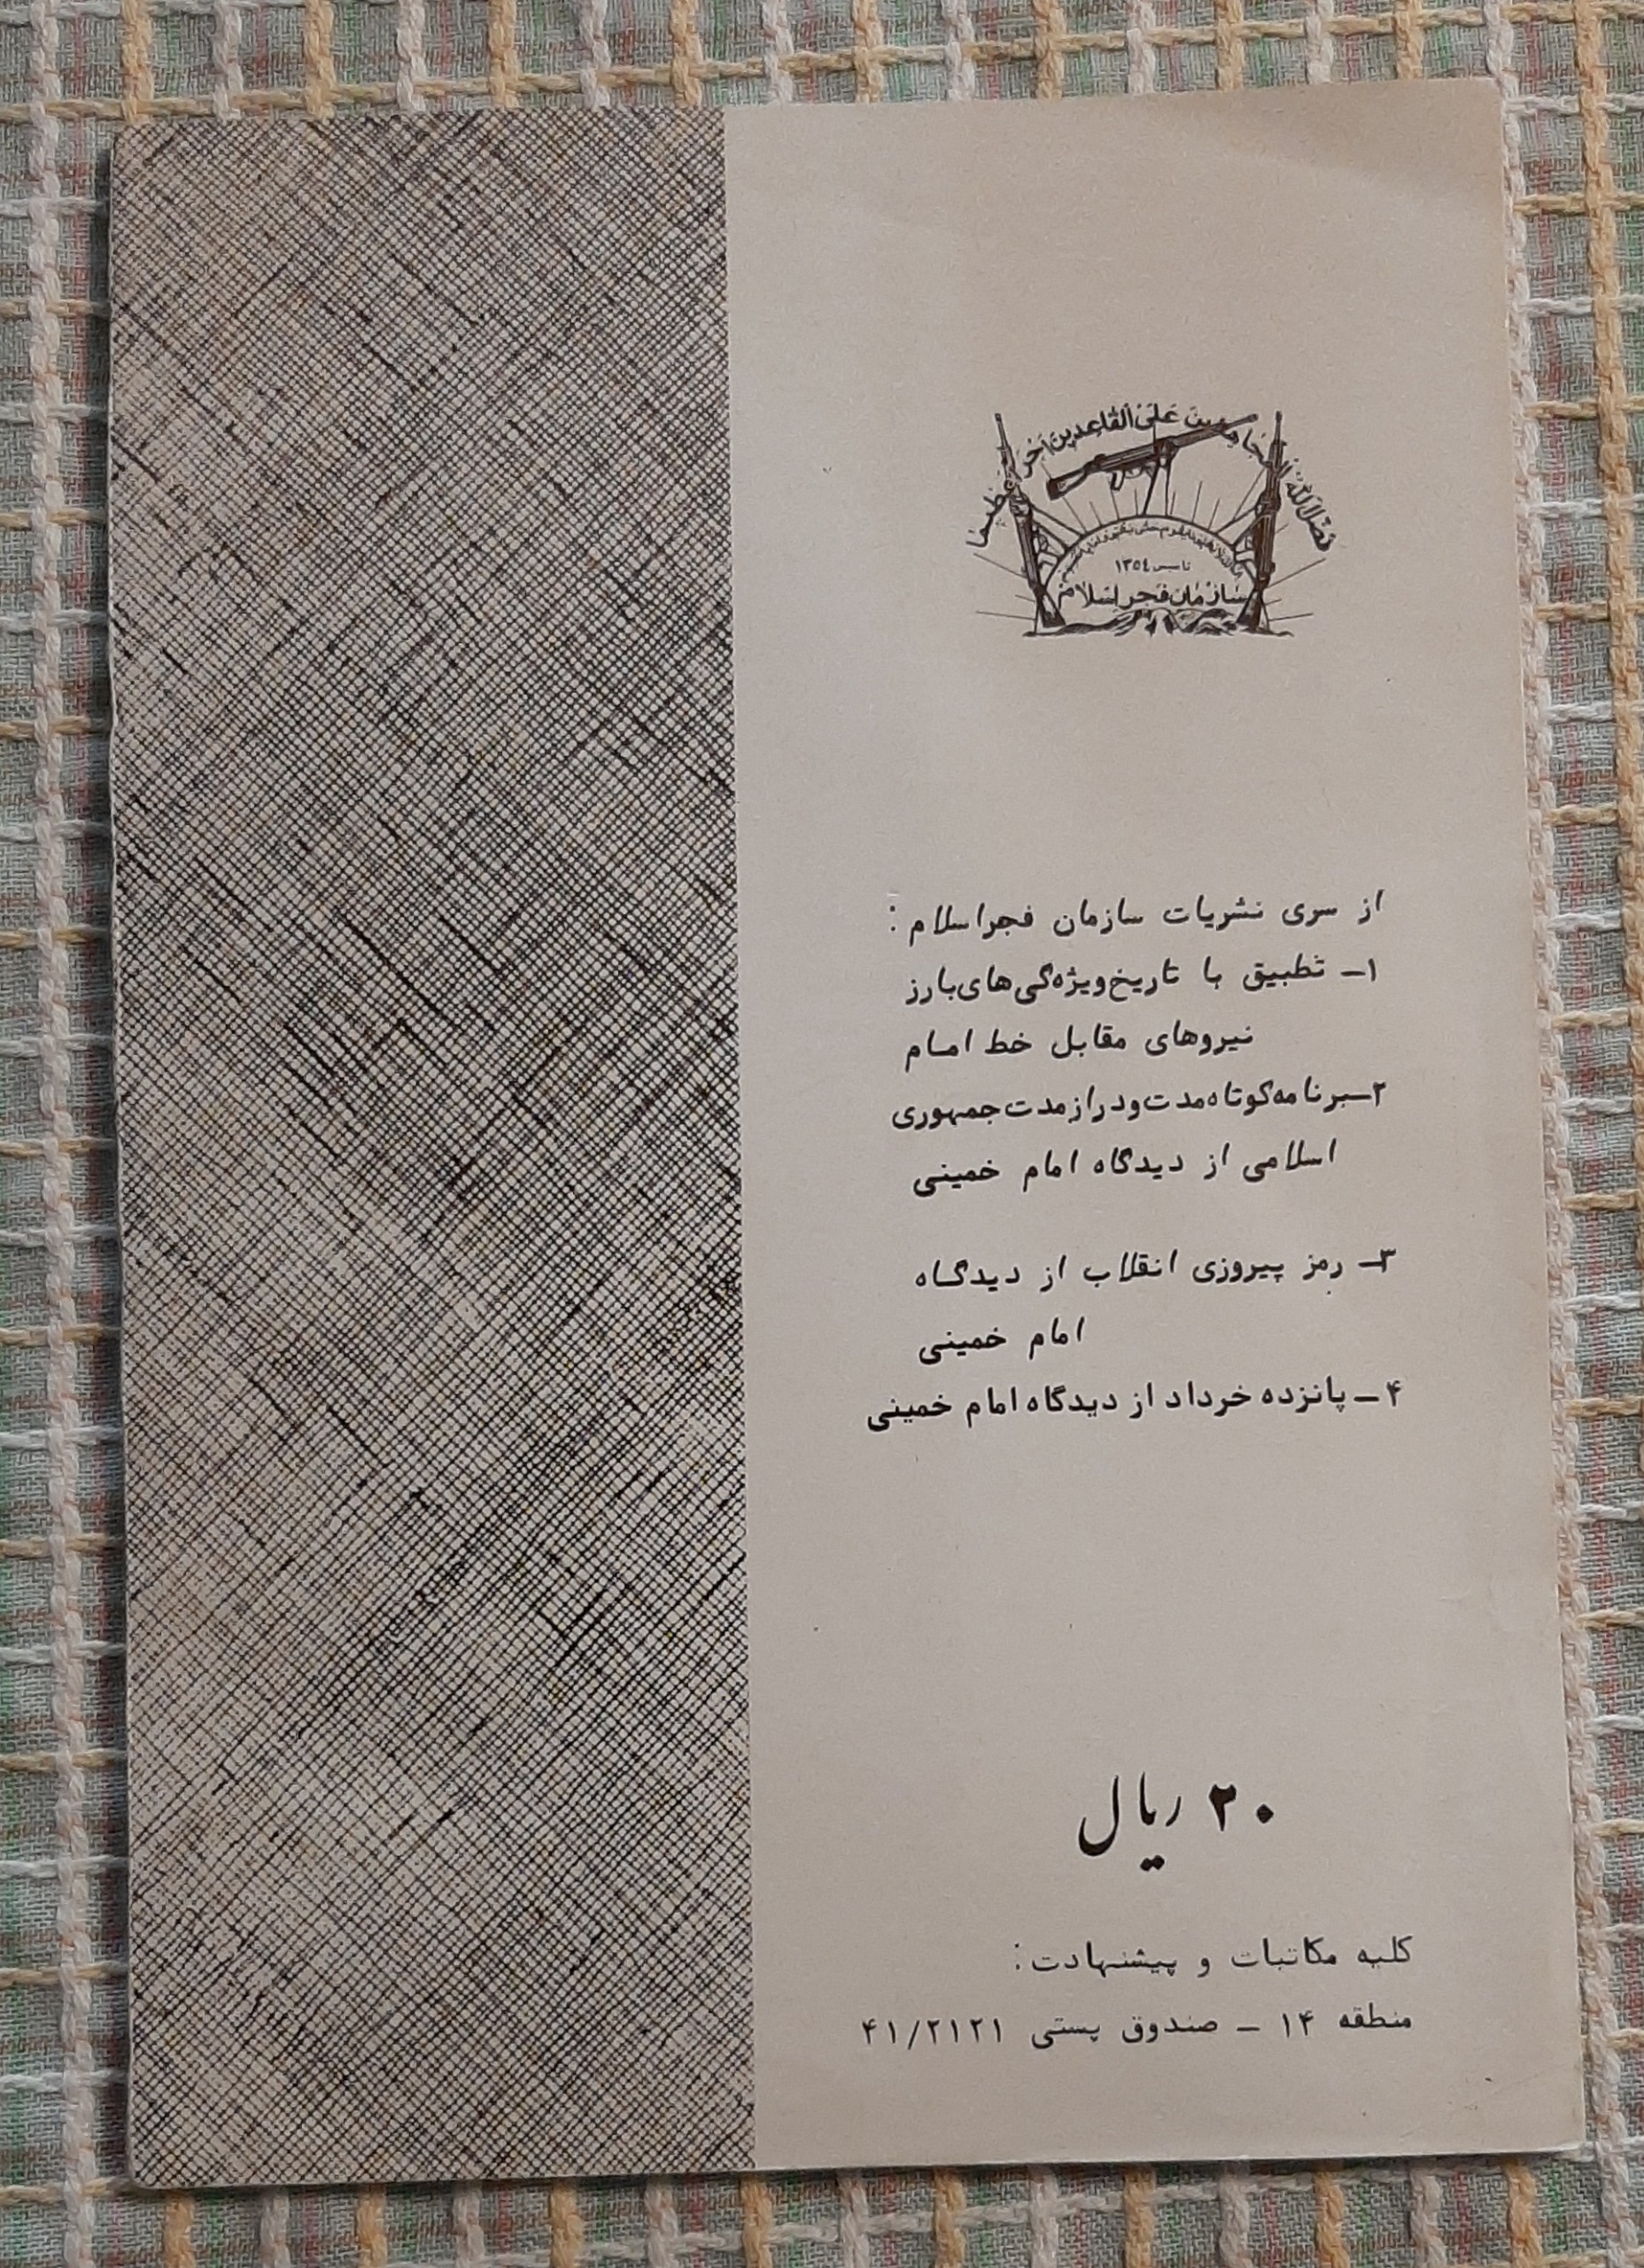 فضل الله المجاهدین علی القاعدین اجرا عظیما
تاسیس ۱۳۵٤
سازمان فجر اسلام
از سری نشریات سازمان فجر اسلام :
۱ــ تطبیق با تاریخ ویژه‌گی‌های بارز
نیروهای مقابل خط امام
۲ــ برنامه کوتاه مدت و دراز مدت جمهوری
اسلامی از دیدگاه امام خمینی
۳ــ رمز پیروزی انقلاب از دیدگاه
امام خمینی
۴ــ پانزده خرداد از دیدگاه امام خمینی
۲۰ ریال
کلیه مکاتبات و پیشنهادت :
منطقه ۱۴ ــ صندوق پستی ۴۱/۲۱۲۱